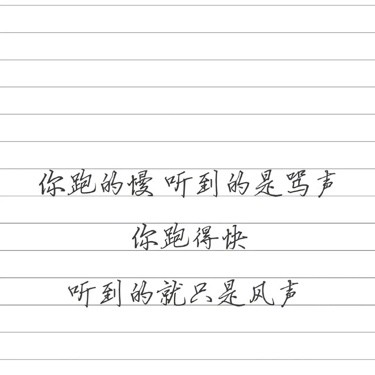 你跑的慢 听到的是骂声
你跑得快
听到的就只是风声